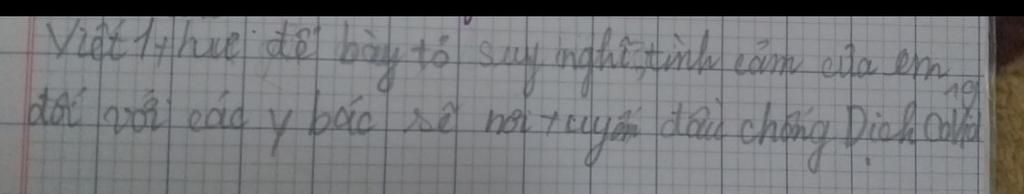 Viết 1 thư để bày tỏ suy nghĩ, tình cảm của em
đối với các y bác sĩ nơi tuyến đầu chống Dịch Covid 19